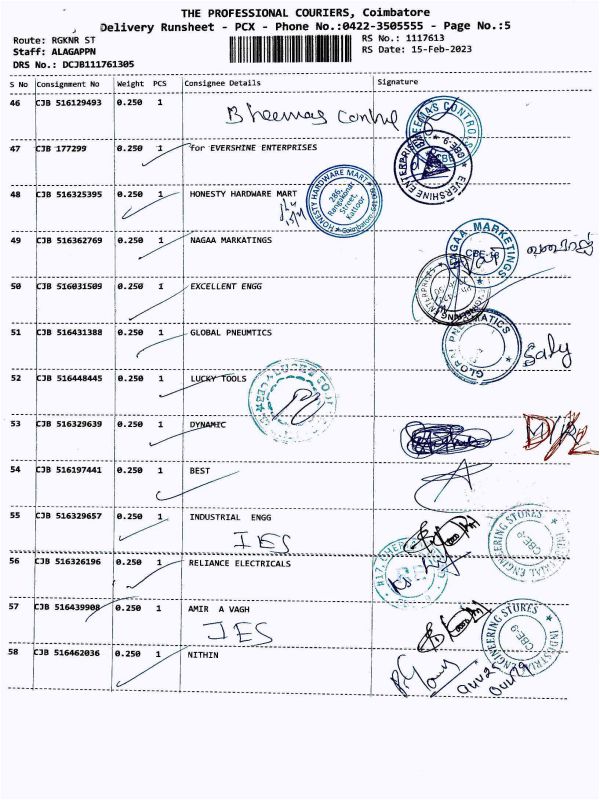 THE PROFESSIONAL COURIERS, Coimbatore
Delivery Runsheet - PCX - Phone No.:0422-3505555 - Page No.:5
Route: RGKNR ST RS No.: 1117613
Staff: ALAGAPPN RS Date: 15-Feb-2023
DRS No.: DCJB111761305
S No Consignment No Weight PCS Consignee Details Signature
46 CJB 516129493 0.250 1 Bheemas Control
47 CJB 177299 0.250 1 for EVERSHINE ENTERPRISES
48 CJB 516325395 0.250 1 HONESTY HARDWARE MART
HONESTY HARDWARE MART
286,
Rangakonar
Street,
Kattoor
49 CJB 516362769 0.250 1 NAGAA MARKATINGS
NAGAA MARKETINGS
50 CJB 516031509 0.250 1 EXCELLENT ENGG
51 CJB 516431388 0.250 1 GLOBAL PNEUMTICS
GLOBAL PNEUMATICS
52 CJB 516448445 0.250 1 LUCKY TOOLS
53 CJB 516329639 0.250 1 DYNAMIC
54 CJB 516197441 0.250 1 BEST
55 CJB 516329657 0.250 1 INDUSTRIAL ENGG
IES
INDUSTRIAL ENGINEERING STORES
CBE-9
56 CJB 516326196 0.250 1 RELIANCE ELECTRICALS
57 CJB 516439908 0.250 1 AMIR A VAGH
IES
INDUSTRIAL ENGINEERING STORES
CBE-9
58 CJB 516462036 0.250 1 NITHIN